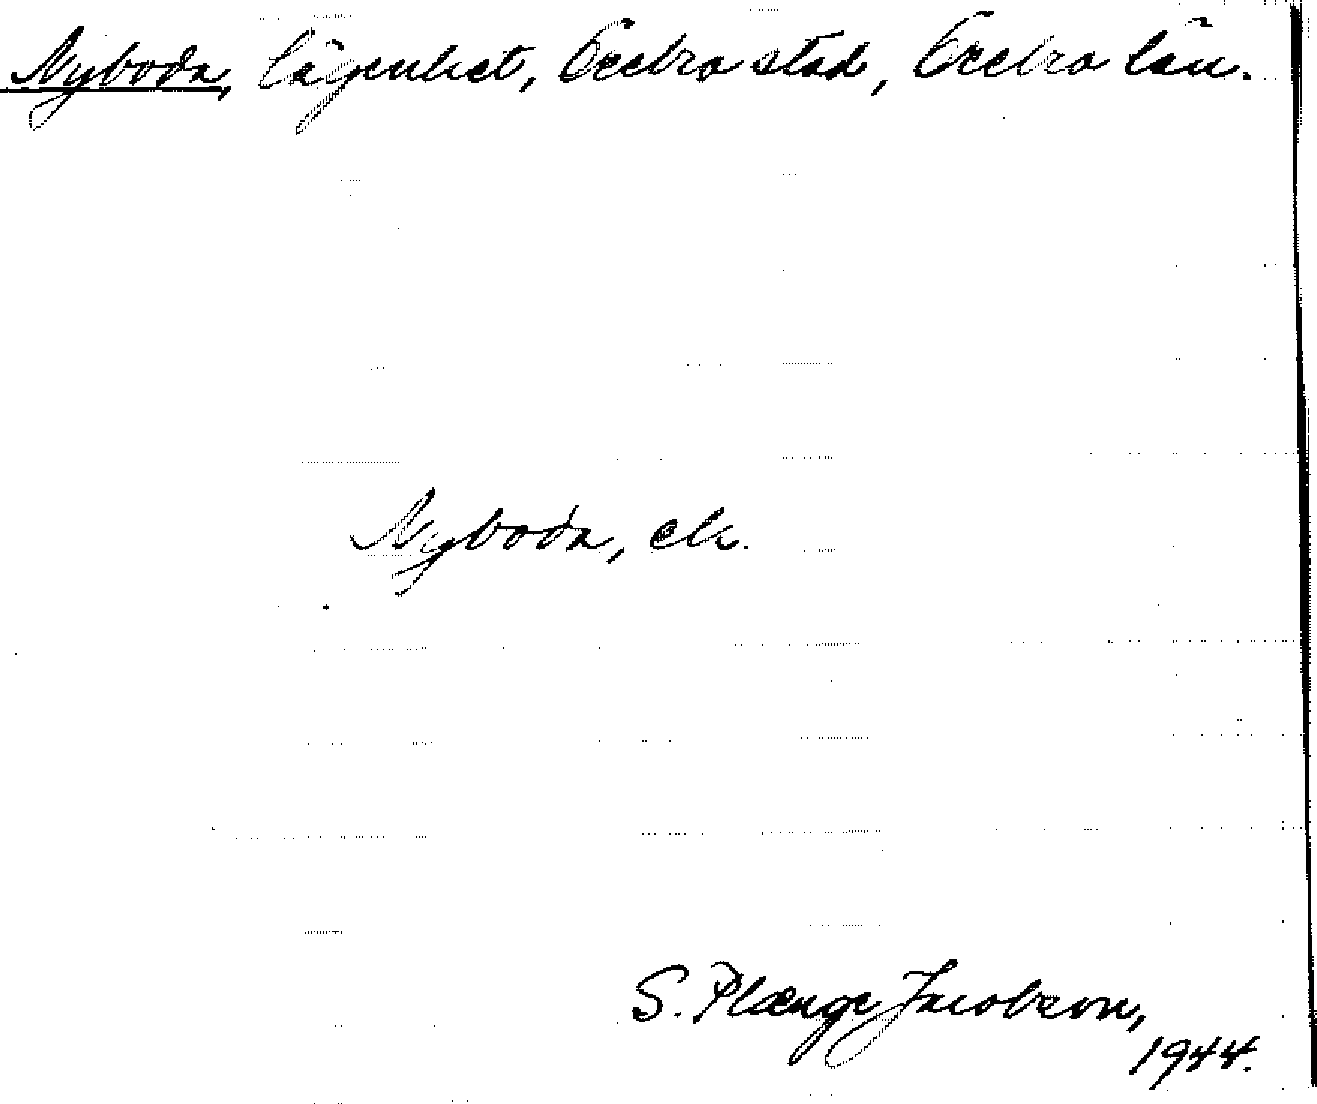 Nyboda, lägenhet, Örebro stad, Örebro län.
Nyboda, ek.
S. Plænge Jacobson,
1944.